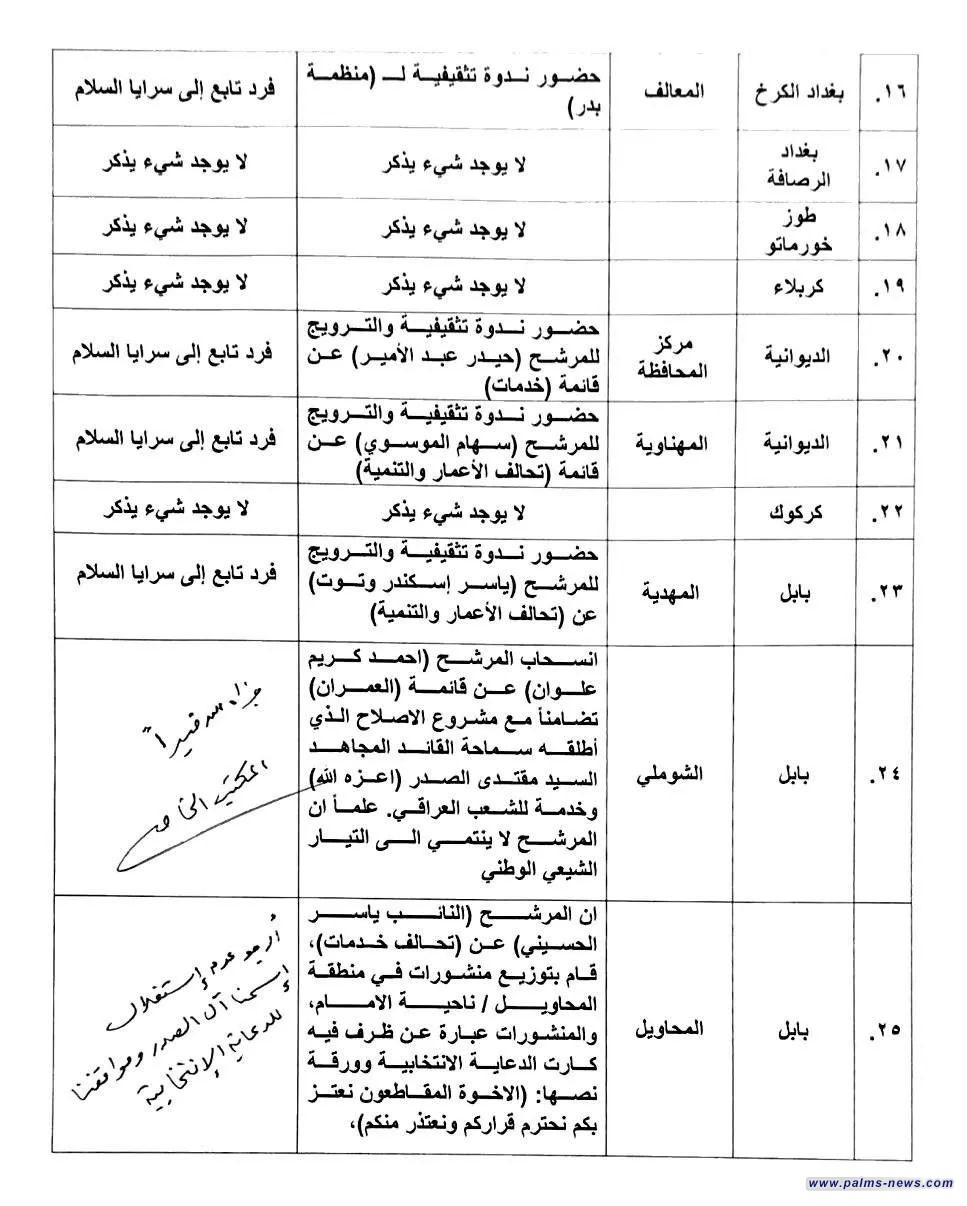 ١٦.
بغداد الكرخ
المعالف
حضور ندوة تثقيفية لـ (منظمة
بدر)
فرد تابع إلى سرايا السلام
١٧.
بغداد
الرصافة
لا يوجد شيء يذكر
لا يوجد شيء يذكر
١٨.
طوز
خورماتو
لا يوجد شيء يذكر
لا يوجد شيء يذكر
١٩.
كربلاء
لا يوجد شيء يذكر
لا يوجد شيء يذكر
٢٠.
الديوانية
مركز
المحافظة
حضور ندوة تثقيفية والترويج
للمرشح (حيدر عبد الأمير) عن
قائمة (خدمات)
فرد تابع إلى سرايا السلام
٢١.
الديوانية
المهناوية
حضور ندوة تثقيفية والترويج
للمرشح (سهام الموسوي) عن
قائمة (تحالف الأعمار والتنمية)
فرد تابع إلى سرايا السلام
٢٢.
كركوك
لا يوجد شيء يذكر
لا يوجد شيء يذكر
٢٣.
بابل
المهدية
حضور ندوة تثقيفية والترويج
للمرشح (ياسر إسكندر وتوت)
عن (تحالف الأعمار والتنمية)
فرد تابع إلى سرايا السلام
٢٤.
بابل
الشوملي
انسحاب المرشح (احمد كريم
علوان) عن قائمة (العمران)
تضامنأ مع مشروع الاصلاح الذي
أطلقه سماحة القائد المجاهد
السيد مقتدى الصدر (اعزه الله)
وخدمة للشعب العراقي. علمأ ان
المرشح لا ينتمي الى التيار
الشيعي الوطني
جزاه الله خيراً
المكتب الخاص
٢٥.
بابل
المحاويل
ان المرشح (النائب ياسر
الحسيني) عن (تحالف خدمات)،
قام بتوزيع منشورات في منطقة
المحاويل / ناحية الامام،
والمنشورات عبارة عن ظرف فيه
كارت الدعاية الانتخابية وورقة
نصها: (الاخوة المقاطعون نعتز
بكم نحترم قراركم ونعتذر منكم)،
أرجو عدم إستغلال
إسمنا آل الصدر ومواقفنا
للدعاية الإنتخابية
www.palms-news.com